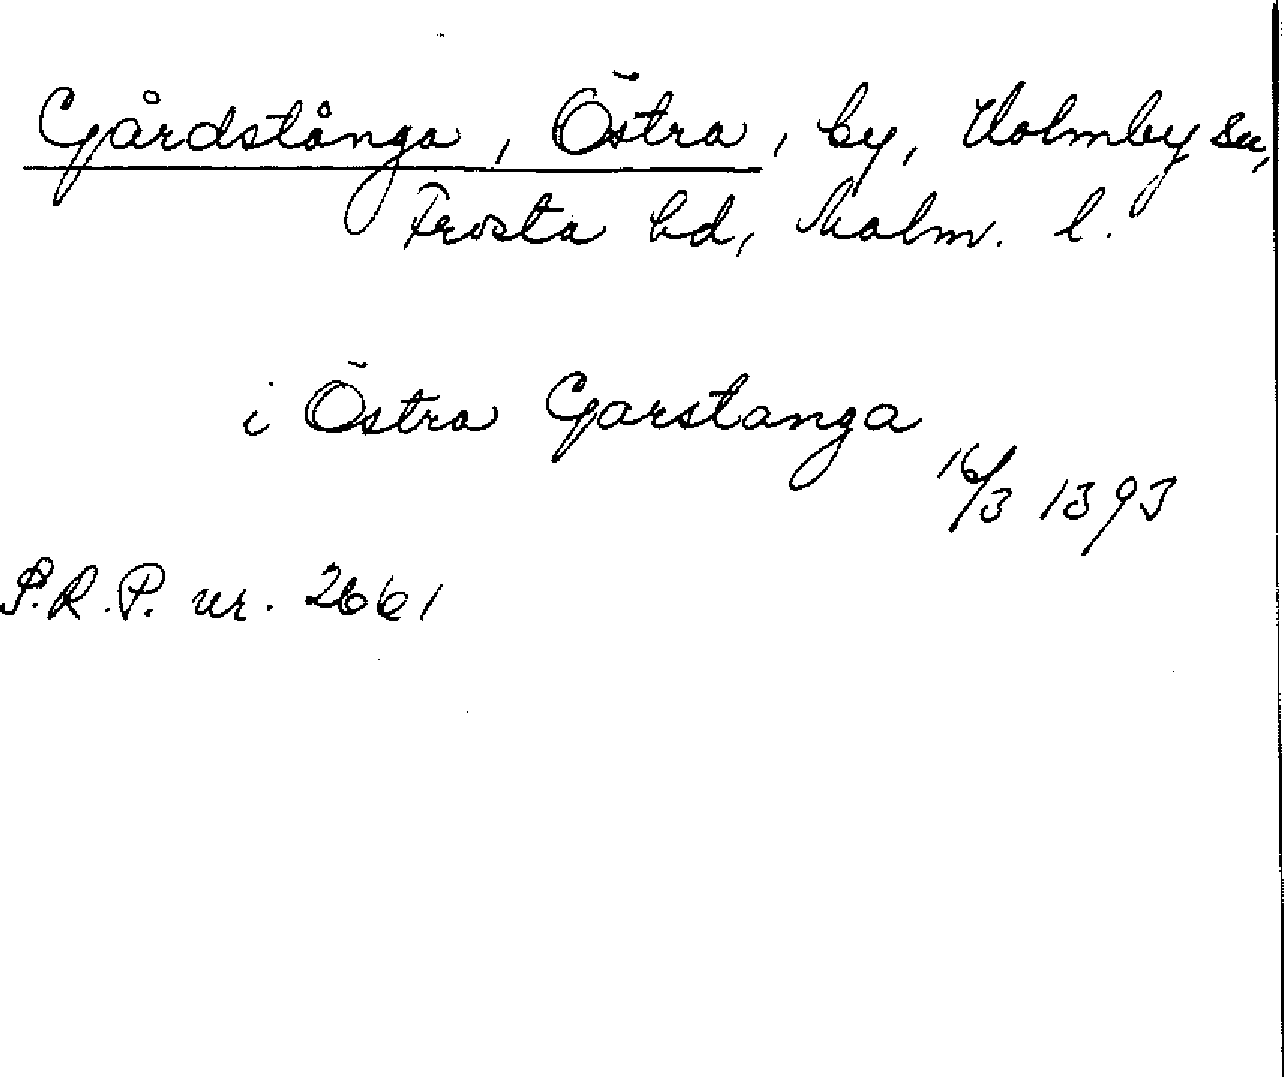 Gårdstånga, Östra, by, Holmby sn,
Frosta hd, Malm. l.
i Östra Garstanga
16/3 1393
S.R.P. nr. 2661